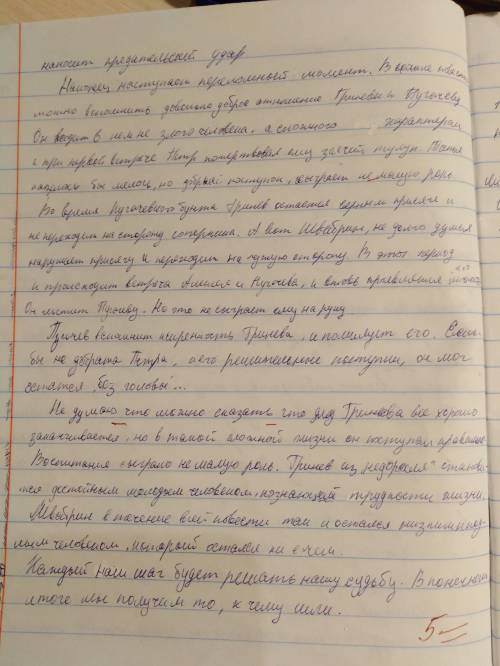 наносит предательский удар
Наконец наступает переломный момент. В начале повести
можно вспомнить довольно доброе отношение Гринёва к Пугачеву
Он видит в нем не злого человека, а сложного характером
и при первой встрече Петр пожертвовал ему заячий тулуп.
казалась бы мелочь, но добрый поступок, сыграет не малую роль
Во время Пугачевского бунта Гринёв остаётся верным присяге и
не переходит на сторону соперника. А вот Швабрин, не долго думая
нарушает присягу и переходит на чужую сторону. В этот период
и происходит встреча и Пугачева, и вновь проявляется
Он льстит Пугачеву. Но это не сыграет ему на руку
Пугачев вспомнит искренность Гринева, и помилует его. Если
бы не доброта Петра, и его решительные поступки, он мог
остатся „без головы"...
Не думаю что можно сказать что для Гринёва все хорошо
заканчивается, но в такой сложной жизни он поступал правильно
Воспитания сыграло не малую роль. Гринев из „недоросля" станови-
тся достойным молодым человеком, познающий трудности жизни.
Швабрин в течение всей повести так и остался низким и под-
лым человеком, который остался ни с чем.
Каждый наш шаг будет решать нашу судьбу. В конечном
итоге мы получим то, к чему шли.
5-